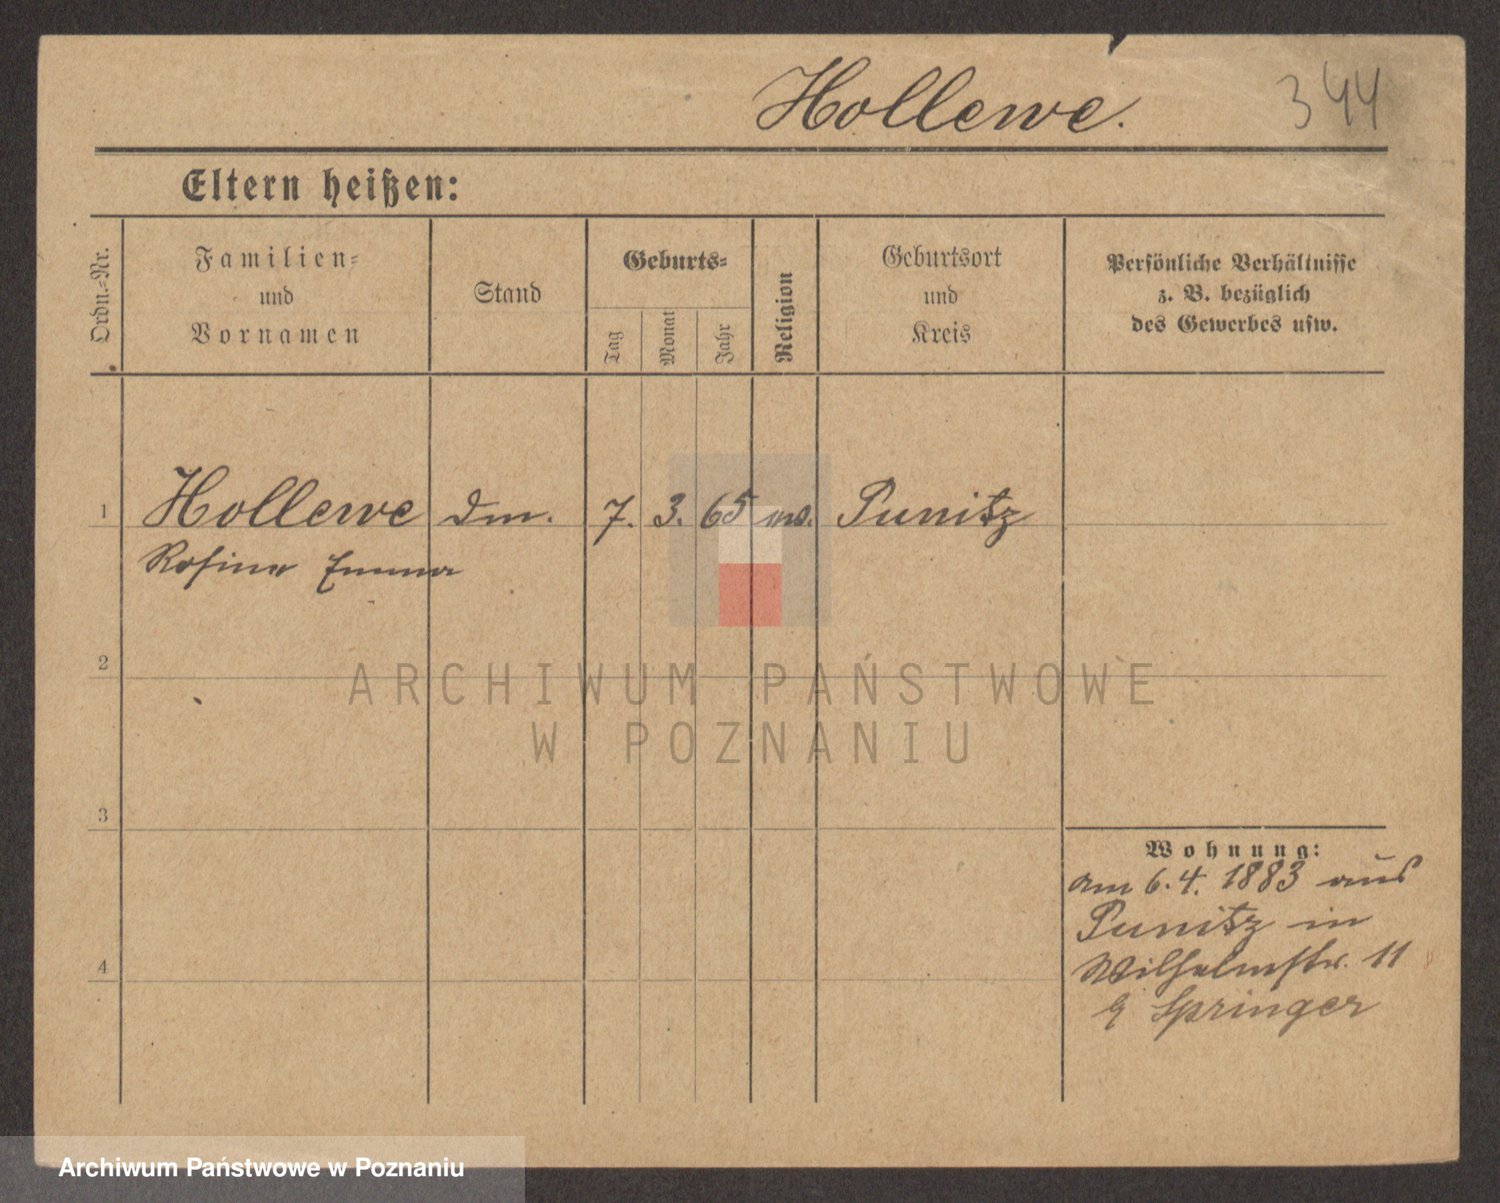 Hollewe. 344
Eltern heißen:
Ordn.-Nr.
Familien-
und
Vornamen
Stand
Geburts-
Tag
Monat
Jahr
Religion
Geburtsort
und
Kreis
Persönliche Verhältnisse
z. B. bezüglich
des Gewerbes usw.
1 Hollewe 7. 3. 65 Punitz
Rosina Emma
2
ARCHIWUM PAŃSTWOWE
W POZNANIU
3
Wohnung:
am 6.4. 1883 aus
Punitz in
Wilhelmstr. 11
4
Springer
Archiwum Państwowe w Poznaniu